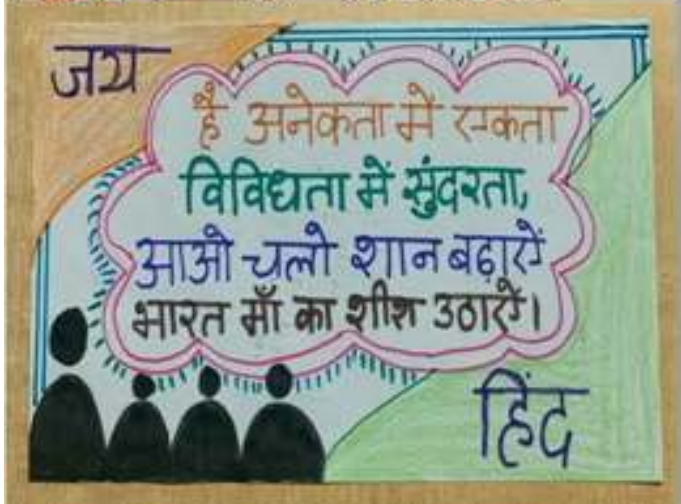 जय
है अनेकता में एकता
विविधता में सुंदरता,
आओ चलो शान बढ़ाऐं
भारत माँ का शीश उठाऐं।
हिंद